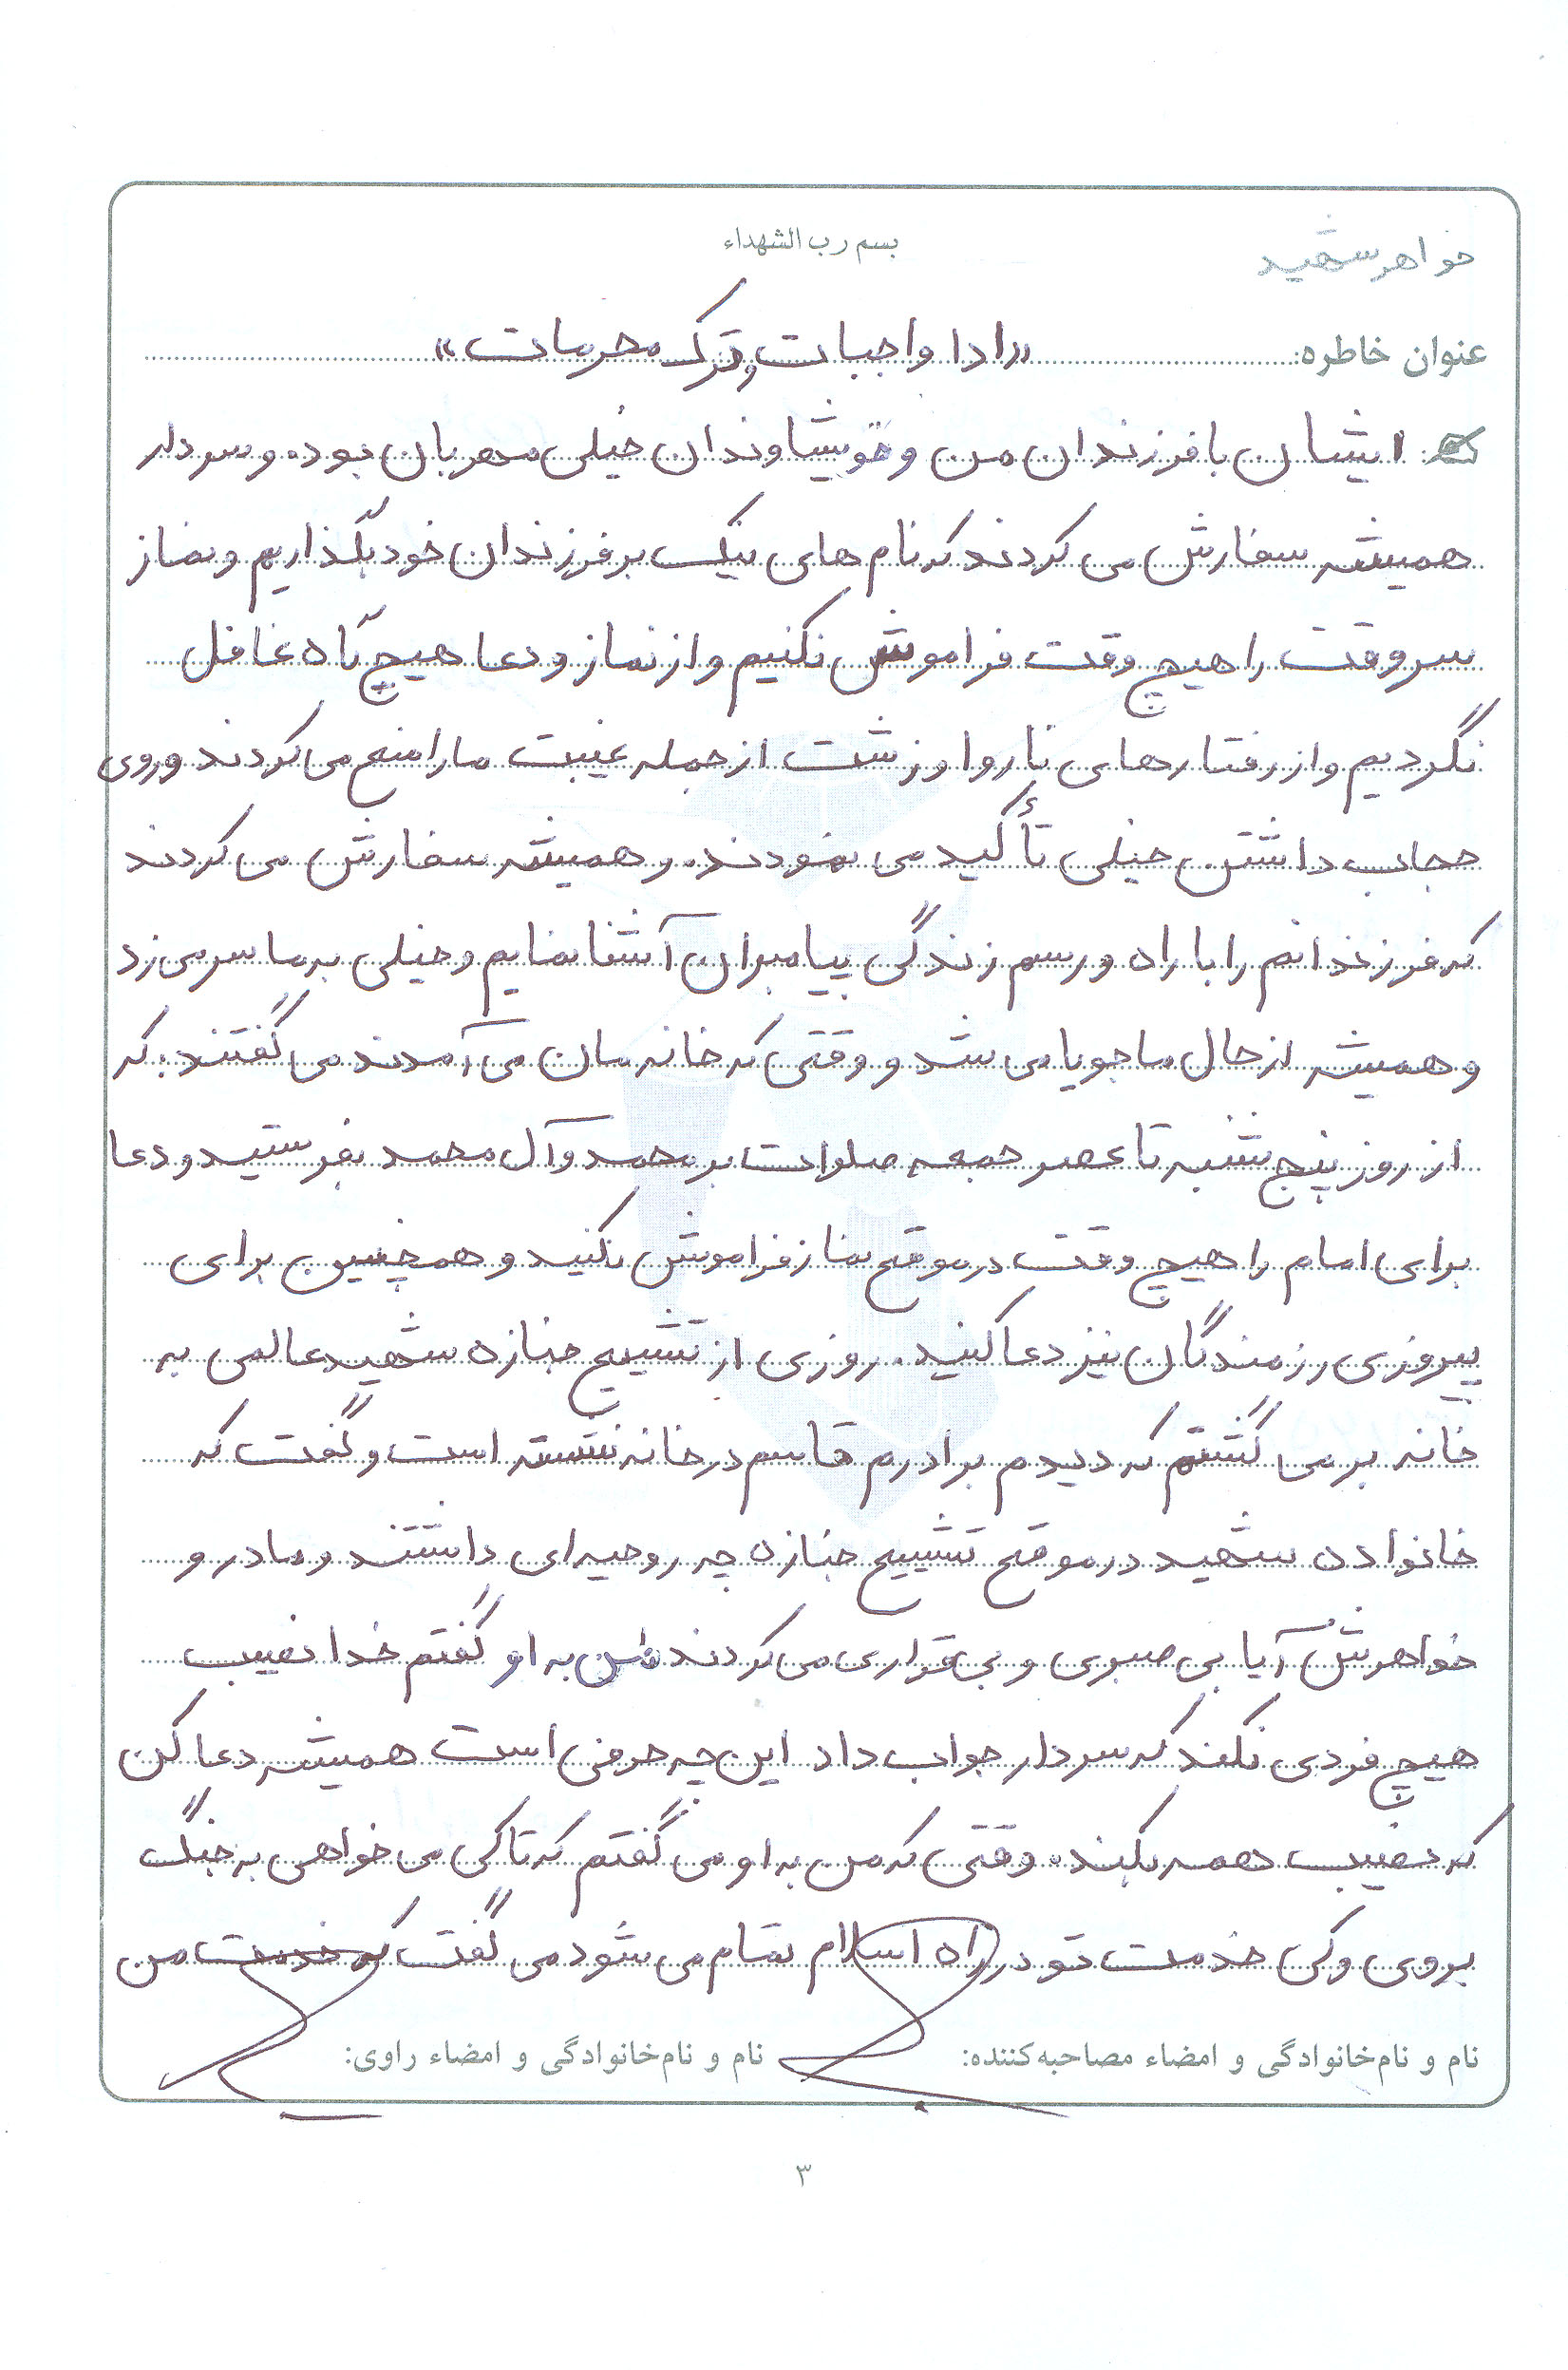 خواهر شهید
بسم رب الشهداء
عنوان خاطره: «ادا واجبات و ترک محرمات»
ایشان با فرزندان من و خویشاوندان خیلی مهربان بود. و سردار
همیشه سفارش می کردند که نام های نیک بر فرزندان خود بگذاریم و نماز
سر وقت را هیچ وقت فراموش نکنیم و از نماز و دعا هیچ گاه غافل
نگردیم و از رفتارهای ناروا و زشت از جمله غیبت ما را منع می کردند و روی
حجاب داشتن خیلی تأکید می نمودند. و همیشه سفارش می کردند
که فرزندانم را با راه و رسم زندگی پیامبران آشنا نمایم و خیلی به ما سر می زد
و همیشه از حال ما جویا می شد و وقتی که خانه مان می آمدند می گفتند: که
از روز پنج شنبه تا عصر جمعه صلوات بر محمد و آل محمد بفرستید و دعا
برای امام را هیچ وقت در موقع نماز فراموش نکنید و همچنین برای
پیروزی رزمندگان نیز دعا کنید. روزی از تشییع جنازه شهید عالمی به
خانه بر می گشتم که دیدم برادرم قاسم در خانه نشسته است و گفت که
خانواده شهید در موقع تشییع جنازه چه روحیه ای داشتند و مادر و
خواهرش آیا بی صبری و بی قراری می کردند من به او گفتم خدا نصیب
هیچ فردی نکند که سردار جواب داد این چه حرفی است همیشه دعا کن
که نصیب همه بکند. وقتی که من به او می گفتم که تا کی می خواهی به جنگ
بروی و کی خدمت تو در راه اسلام تمام می شود می گفت که خدمت من
نام و نام خانوادگی و امضاء مصاحبه کننده: نام و نام خانوادگی و امضاء راوی:
۳